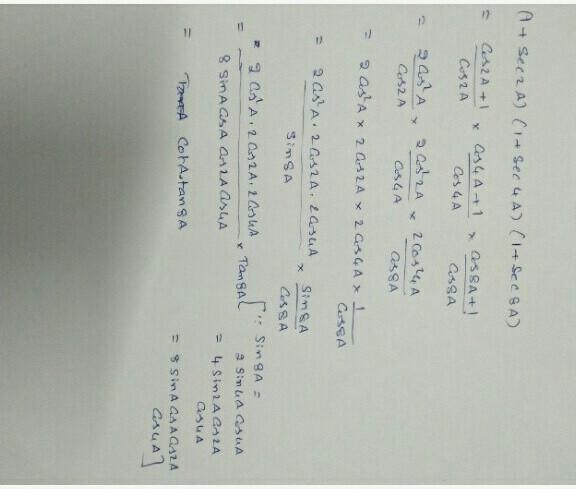 (1 + Sec2A) (1 + Sec4A) (1 + Sec8A)
= Cos2A+1/Cos2A × Cos4A+1/Cos4A × Cos8A+1/Cos8A
= 2Cos²A/Cos2A × 2Cos²2A/Cos4A × 2Cos²4A/Cos8A
= 2Cos²A × 2Cos2A × 2Cos4A × 1/Cos8A
= 2Cos²A · 2Cos2A · 2Cos4A/Sin8A × Sin8A/Cos8A
= 2Cos²A · 2Cos2A · 2Cos4A/8 SinA CosA Cos2A Cos4A × Tan8A
[∵ Sin8A =
2 Sin4A Cos4A
= 4 Sin2A Cos2A
Cos4A
= 8 SinA CosA Cos2A
Cos4A]
= CotA · tan8A